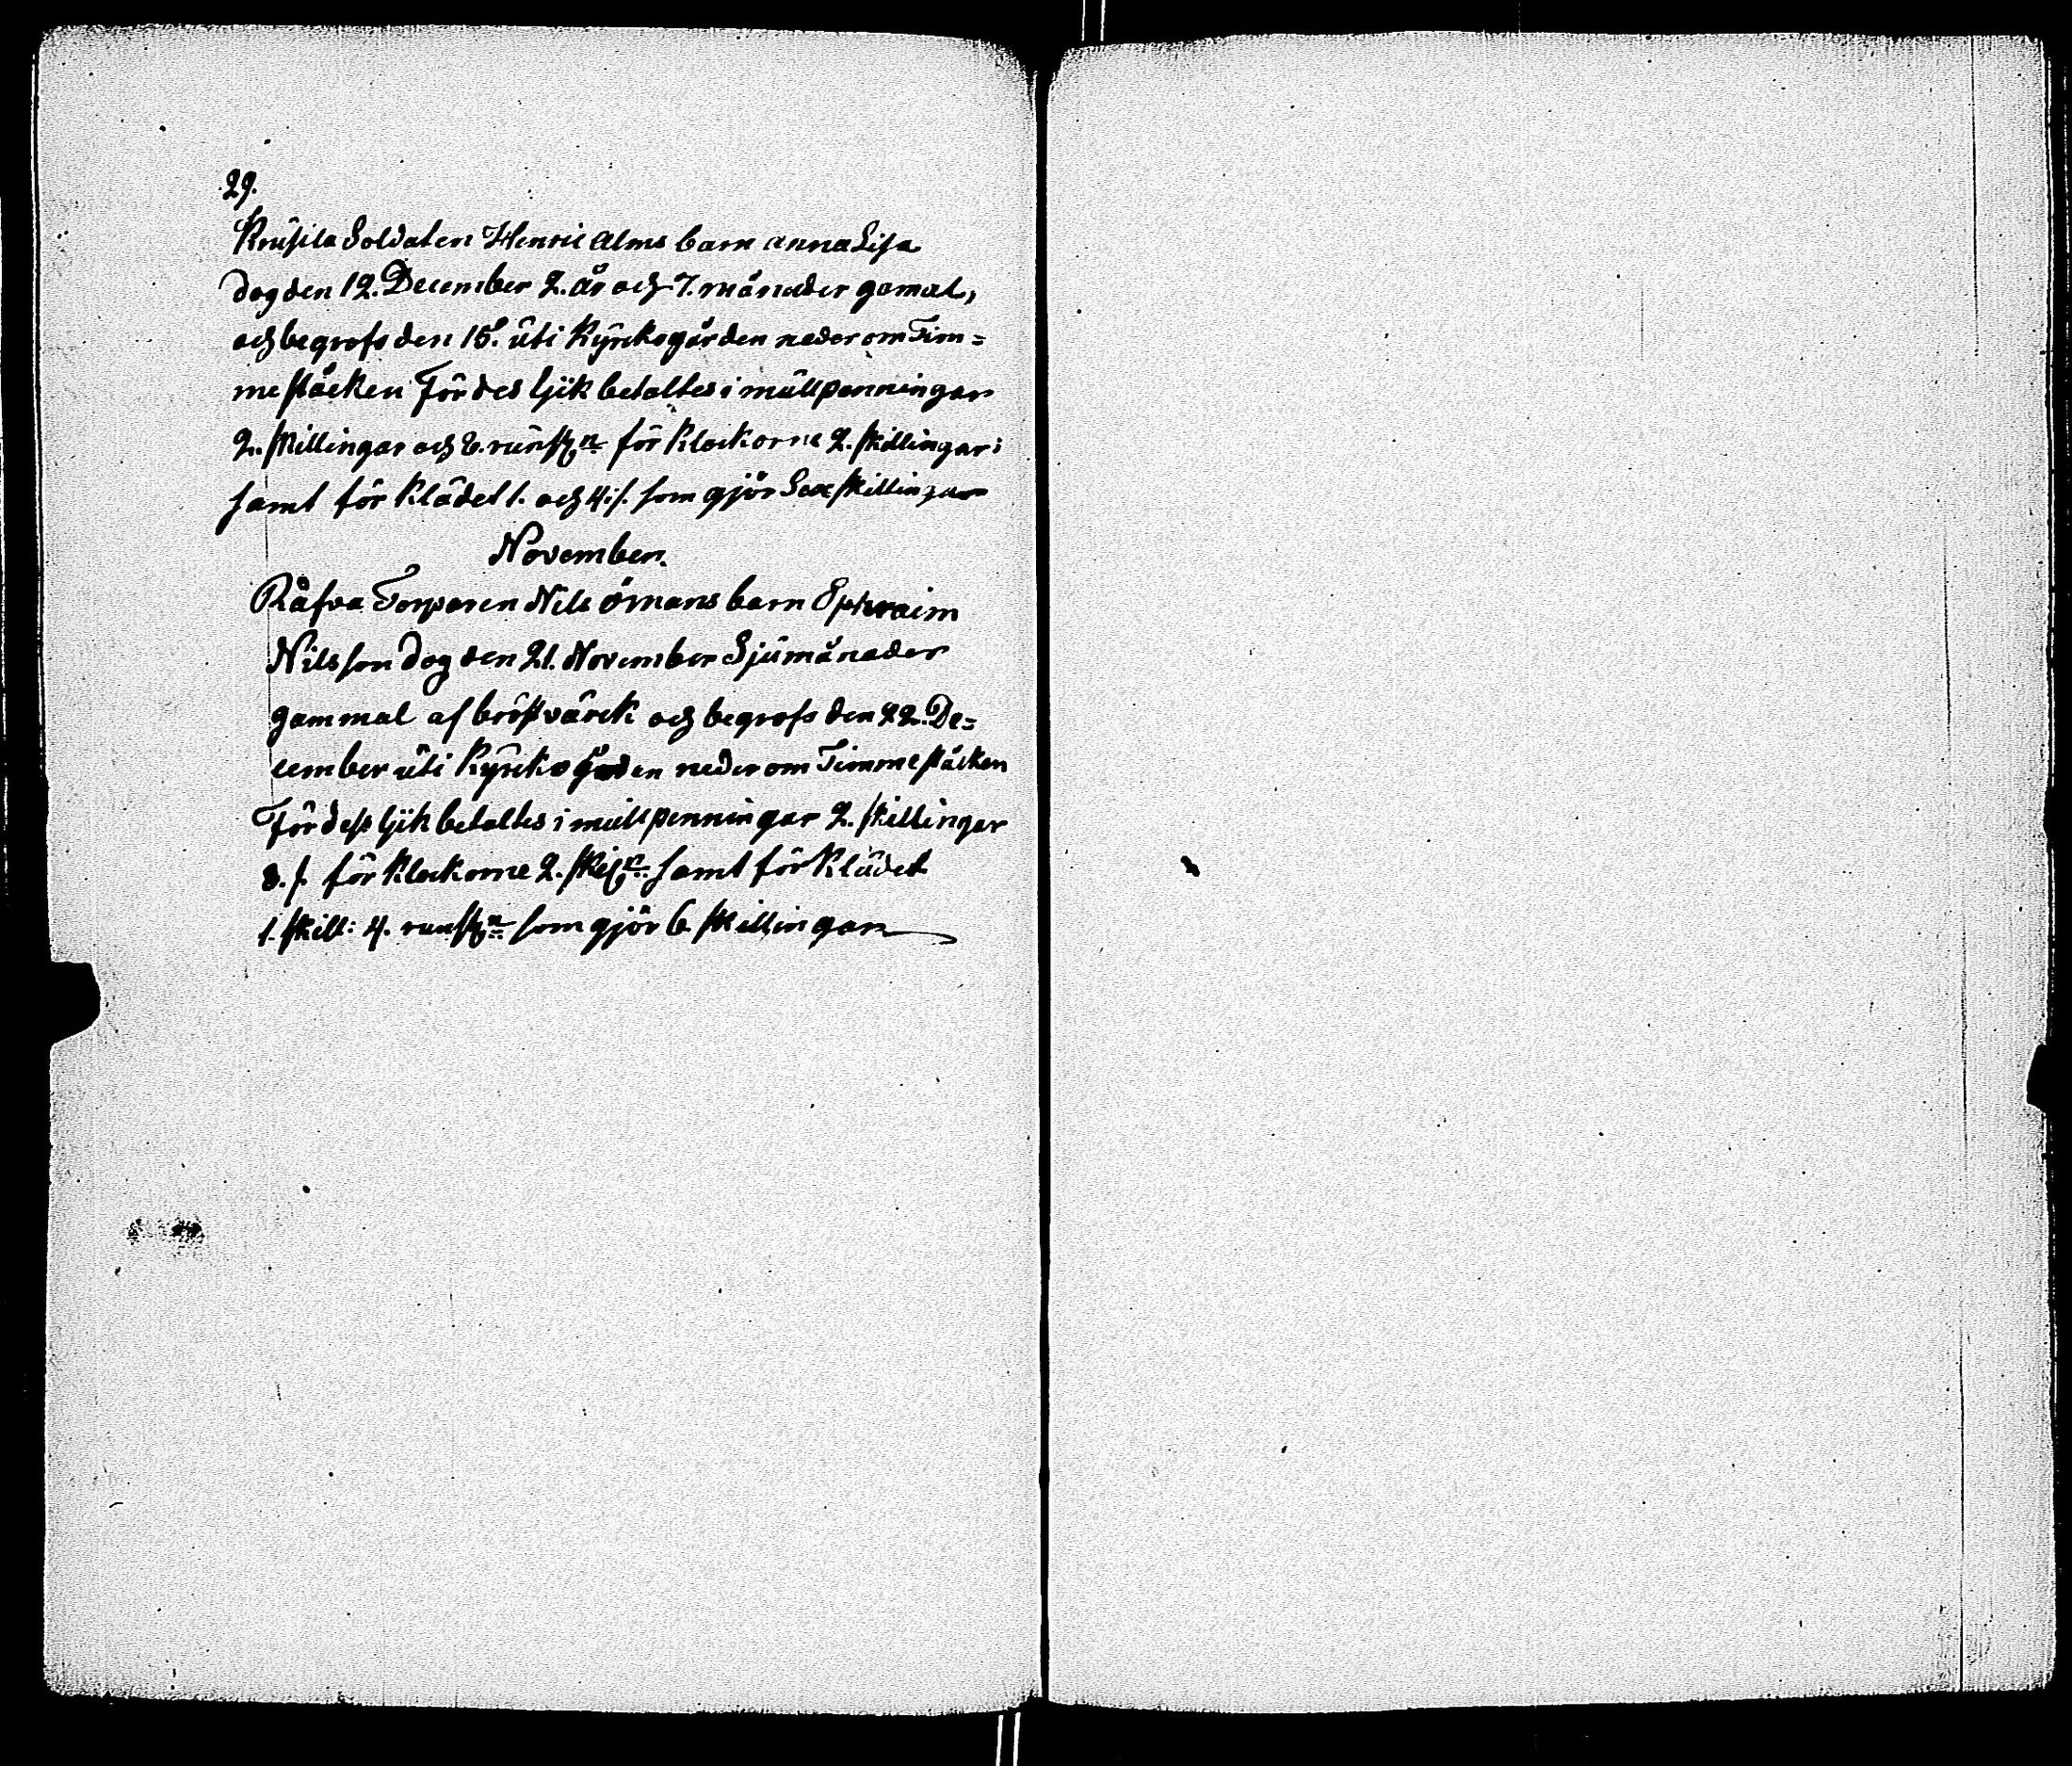 29.
Krusila Soldaten Henric Alms barn anna Lisa
dog den 12. December 2. år och 7. månader gamal,
och begrofs den 15. uti Kyrckogården neder om Tim=
mestäcken För des ljik betaltes i mullpenningar
2. skillingar och 8. runst:n för Klockorne 2. skillingar:
samt för Klädet 1. och 4: s. som gjör Sex skillingar
November.
Råfva Torparen Nils Ömans barn Ephraim
Nilsson dog den 21. November Sju månader
gammal af bröstvärck och begrofs den 22. De=
cember uti Kyrckogården neder om Timmestäcken
För dess ljik betaltes i mullpenningar 2. skillingar
8. s. för Klockorne 2. skil:r samt för Klädet
1. skill: 4. runst:n som gjör 6 skillingar